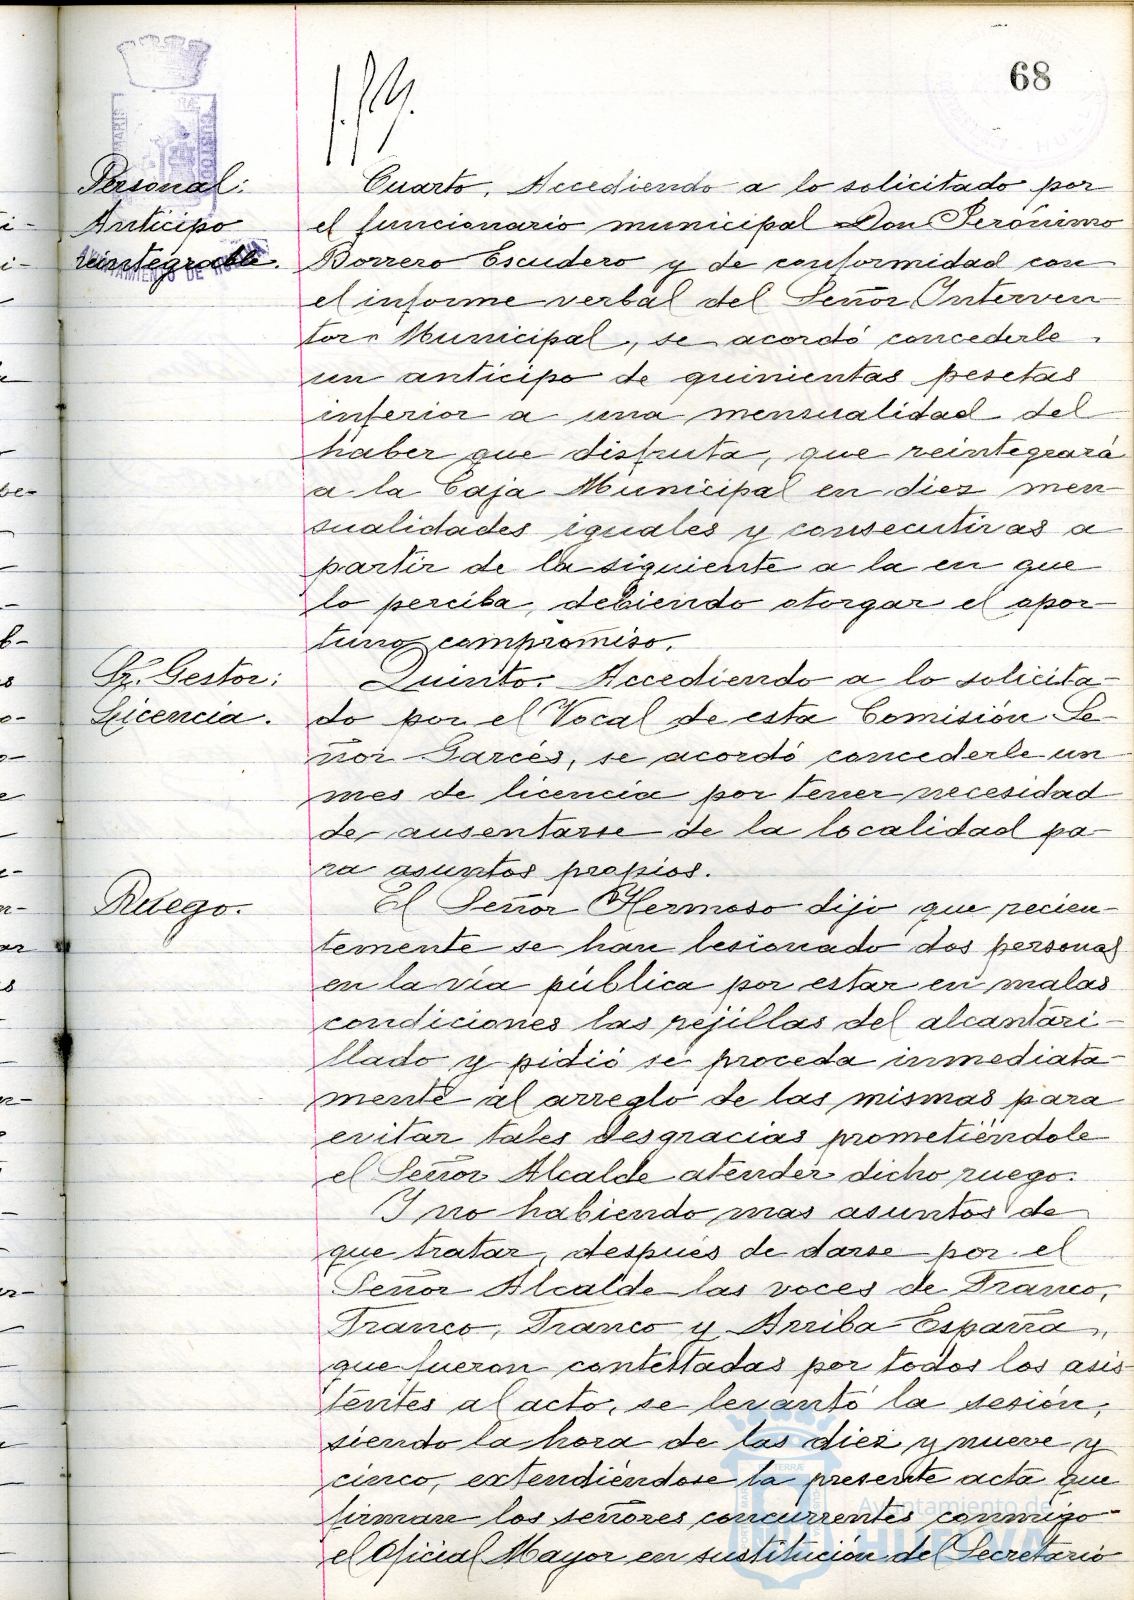 68
Personal:
Anticipo
reintegrable.
Cuarto. Accediendo a lo solicitado por
el funcionario municipal Don Jerónimo
Borrero Escudero y de conformidad con
el informe verbal del Señor Interven
tor Municipal, se acordó concederle
un anticipo de quinientas pesetas
inferior a una mensualidad del
haber que disfruta, que reintegrará
a la Caja Municipal en diez men
sualidades iguales y consecutivas a
partir de la siguiente a la en que
lo perciba, debiendo otorgar el opor-
tuno compromiso.
Sr. Gestor:
Licencia.
Quinto. Accediendo a lo solicita-
do por el Vocal de esta Comisión Se-
ñor Garcés, se acordó concederle un
mes de licencia por tener necesidad
de ausentarse de la localidad pa-
ra asuntos propios.
Ruego.
El Señor Hermoso dijo que recien-
temente se han lesionado dos personas
en la vía pública por estar en malas
condiciones las rejillas del alcantari-
llado y pidió se proceda inmediata-
mente al arreglo de las mismas para
evitar tales desgracias prometiéndole
el Señor Alcalde atender dicho ruego.
Y no habiendo mas asuntos de
que tratar, después de darse por el
Señor Alcalde las voces de Franco,
Franco, Franco y Arriba España,
que fueron contestadas por todos los asis
tentes al acto, se levantó la sesión,
siendo la hora de las diez y nueve y
cinco, extendiéndose la presente acta que
firman los señores concurrentes conmigo
el Oficial Mayor en sustitución del Secretario
Ayuntamiento de
HUELVA